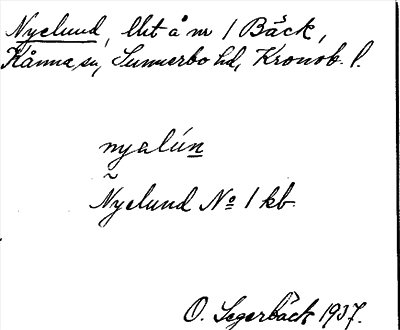 Nyelund, lht å nr 1 Bäck,
Kånna sn, Sunnerbo hd, Kronob. l.
nyalún
Ñyelund No 1 kb.
O. Segerbäck 1937.